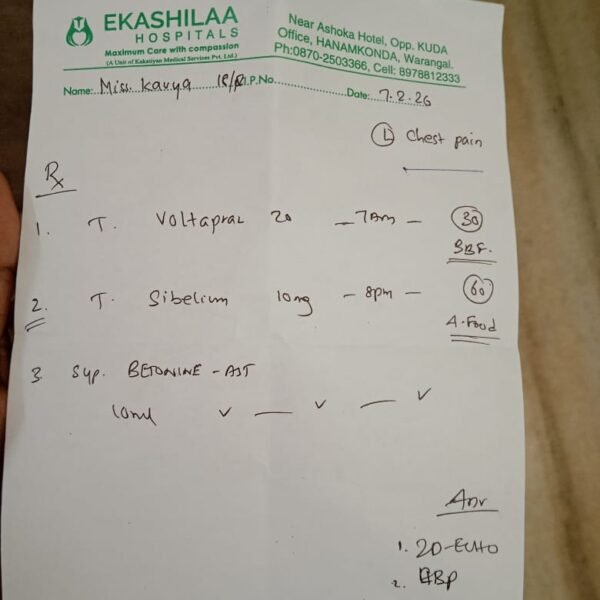 EKASHILAA
HOSPITALS
Maximum Care with compassion
(A Unit of Kakatiyan Medical Services Pvt. Ltd.)
Near Ashoka Hotel, Opp. KUDA
Office, HANAMKONDA, Warangal.
Ph:0870-2503366, Cell: 8978812333
Name: Miss. Kavya 18/ I.P.No. Date: 7.2.26
(L) Chest pain
Rx
1. T. Voltapraz 20 — 7Am — 30
BBF.
2. T. Sibelium 10mg — 8pm — 60
A. Food
3. Syp. BETONINE - AST
10ml ✓ — ✓ — ✓
Adv
1. 2D-ECHO
2. BP